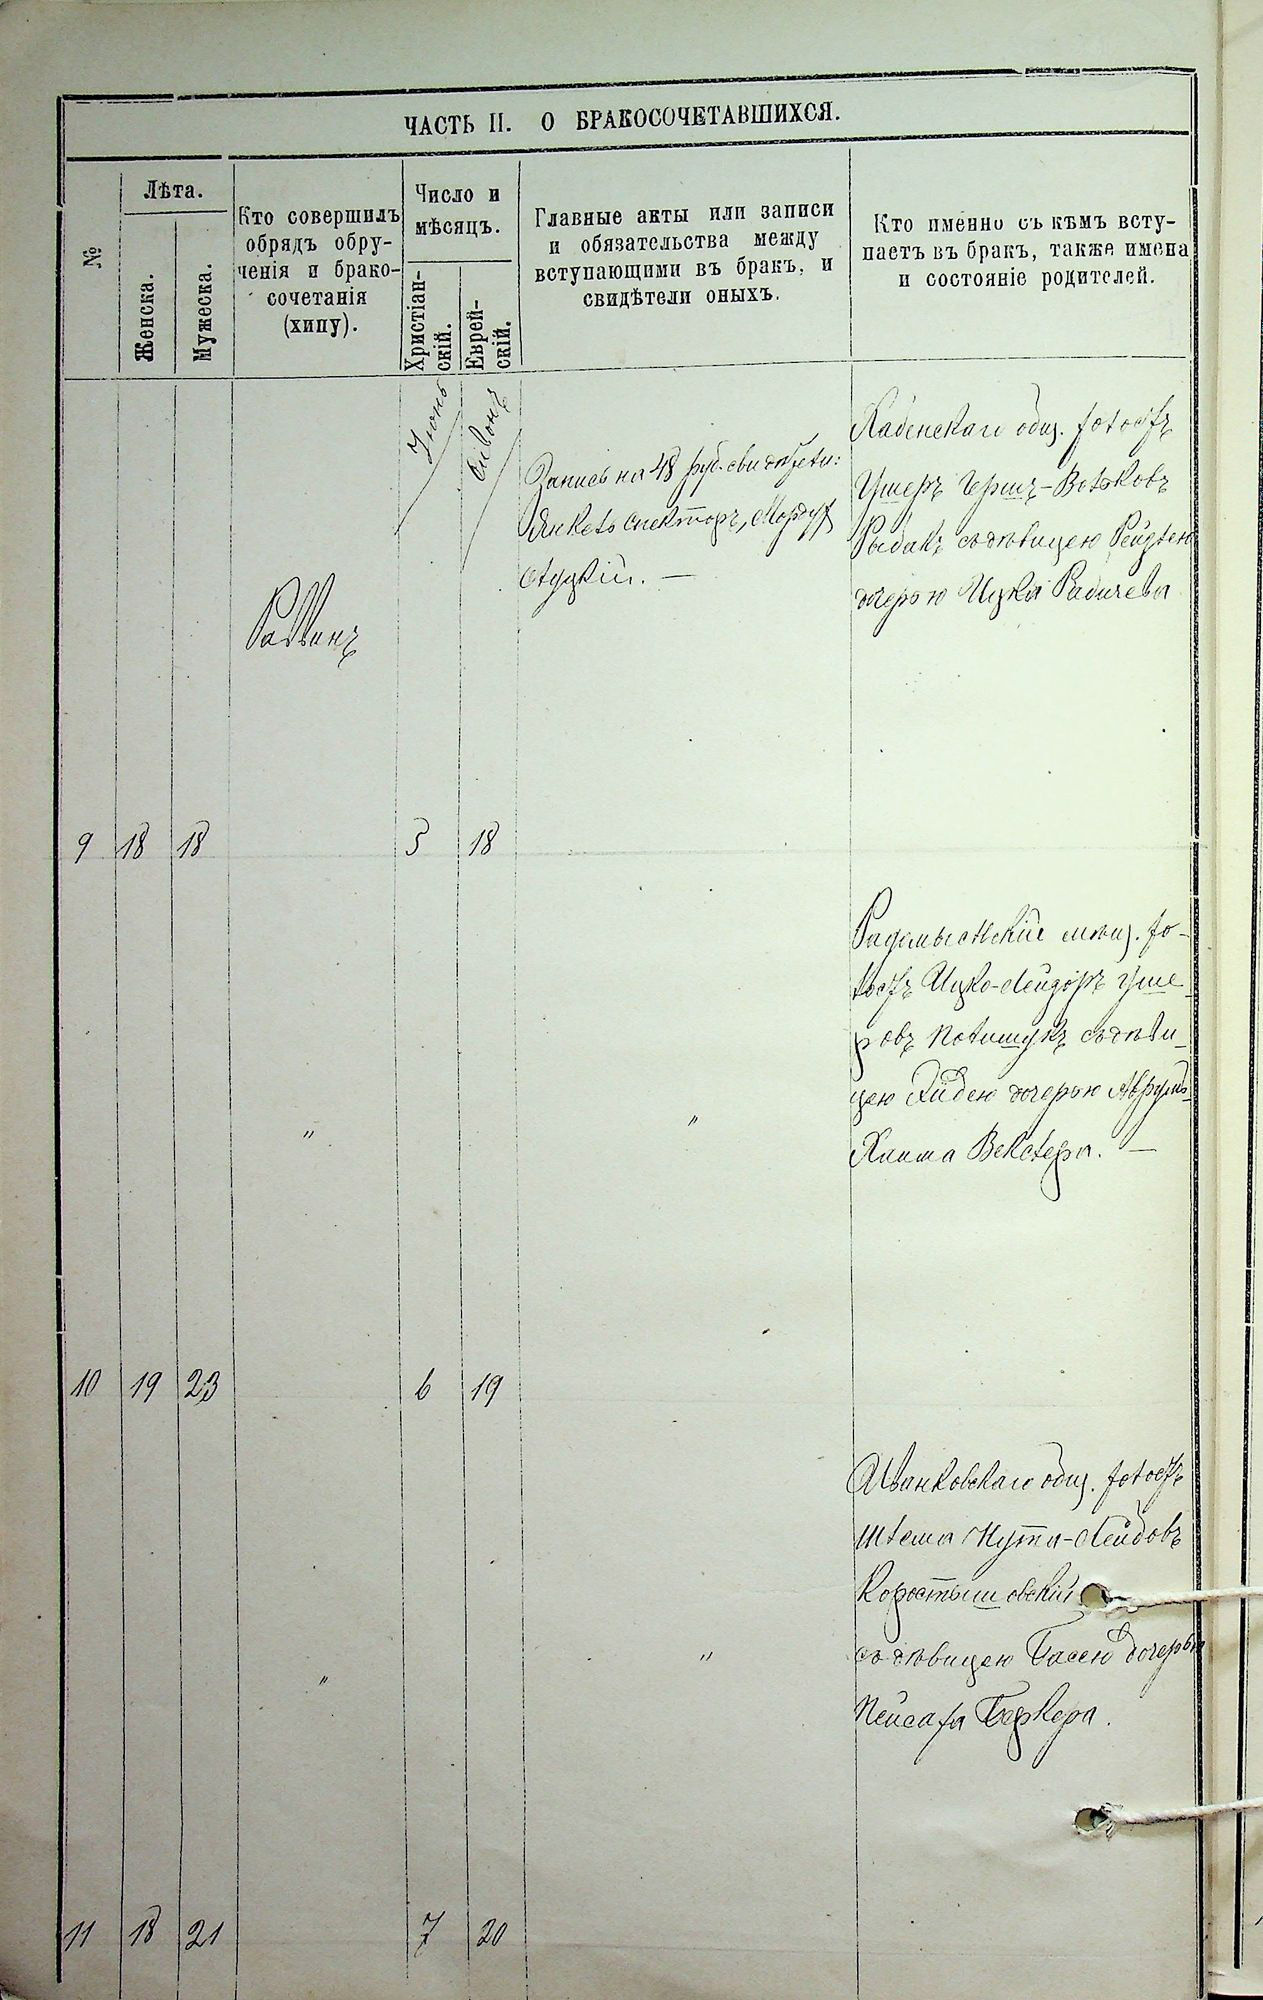 ЧАСТЬ II. О БРАКОСОЧЕТАВШИХСЯ.
№
Лѣта.
Женска.
Мужеска.
Кто совершилъ
обрядъ обру-
ченія и брако-
сочетанія
(хипу).
Число и
мѣсяцъ.
Христіан-
скій.
Еврей-
скій.
Главные акты или записи
и обязательства между
вступающими въ бракъ, и
свидѣтели оныхъ.
Кто именно съ кѣмъ всту-
паетъ въ бракъ, также имена
и состояніе родителей.
Раввинъ
Іюнь
Сивонъ
Запись на 48 руб. свидѣтели:
Янкель Спекторъ, Мордух
Слуцкій. —
общ. холостъ
Ушеръ Герш-Волковъ
Рыбакъ съ дѣвицею Рейзею
дочерью Ицка Радичева
9 18 18 5 18
Радомысльскій мѣщ. хо-
лостъ Ицко-Лейзоръ Уше-
ровъ Полищукъ съ дѣви-
цею дочерью Аврумъ-
Хаима Векслера. —
"
"
10 19 23 6 19
Иванковскаго общ. холостъ
Шлема Нута-Лейбовъ
Коростышовскій
съ дѣвицею Басею дочерью
Пейсаха Беркера.
"
"
11 18 21 7 20